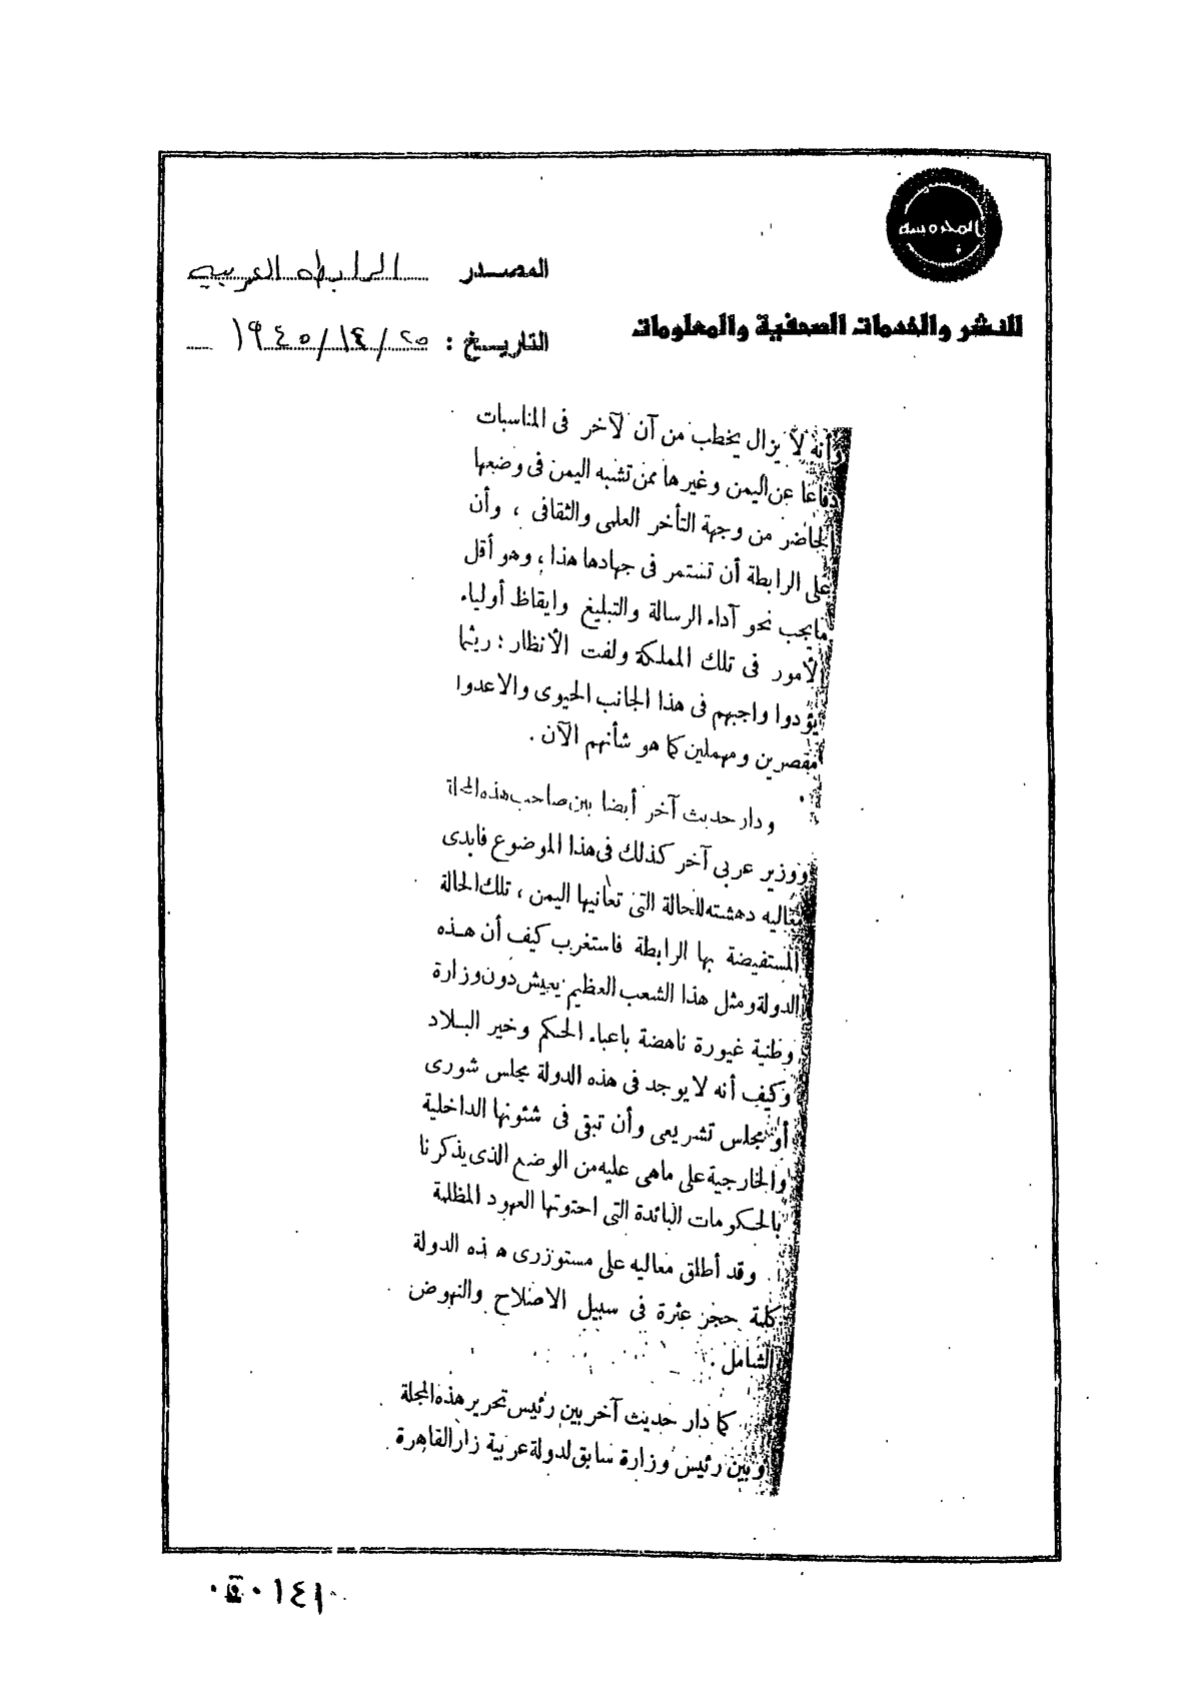 المحروسة
المصدر الرابطه العربيه
للنشر والخدمات الصحفية والمعلومات
التاريخ : ٢٥/١٤/١٩٤٥
وأنه لا يزال يخطب من آن لآخر فى المناسبات
دفاعا عن اليمن وغيرها ممن تشبه اليمن فى وضعها
الحاضر من وجهة التأخر العلمى والثقافى ، وأن
على الرابطة أن تستمر فى جهادها هذا ، وهو أقل
مايجب نحو آداء الرسالة والتبليغ وايقاظ أولياء
الأمور فى تلك المملكة ولفت الأنظار : ريثما
يؤدوا واجبهم فى هذا الجانب الحيوى والاعدوا
مقصرين ومهملين كما هو شأنهم الآن .
ودار حديث آخر أيضا بين صاحب هذه المجلة
ووزير عربى آخر كذلك فى هذا الموضوع فابدى
معاليه دهشته للحالة التى تعانيها اليمن ، تلك الحالة
المستفيضة بها الرابطة فاستغرب كيف أن هذه
الدولة ومثل هذا الشعب العظيم يعيش دون وزارة
وطنية غيورة ناهضة باعباء الحكم وخير البلاد
وكيف أنه لا يوجد فى هذه الدولة مجلس شورى
أو مجلس تشريعى وأن تبقى فى شئونها الداخلية
والخارجية على ماهى عليه من الوضع الذى يذكرنا
بالحكومات البائدة التى احتوتها العهود المظلمة
وقد أطلق معاليه على مستوزرى هذه الدولة
كلمة حجز عثرة فى سبيل الاصلاح والنهوض
الشامل .
كما دار حديث آخر بين رئيس تحرير هذه المجلة
وبين رئيس وزارة سابق لدولة عربية زار القاهرة